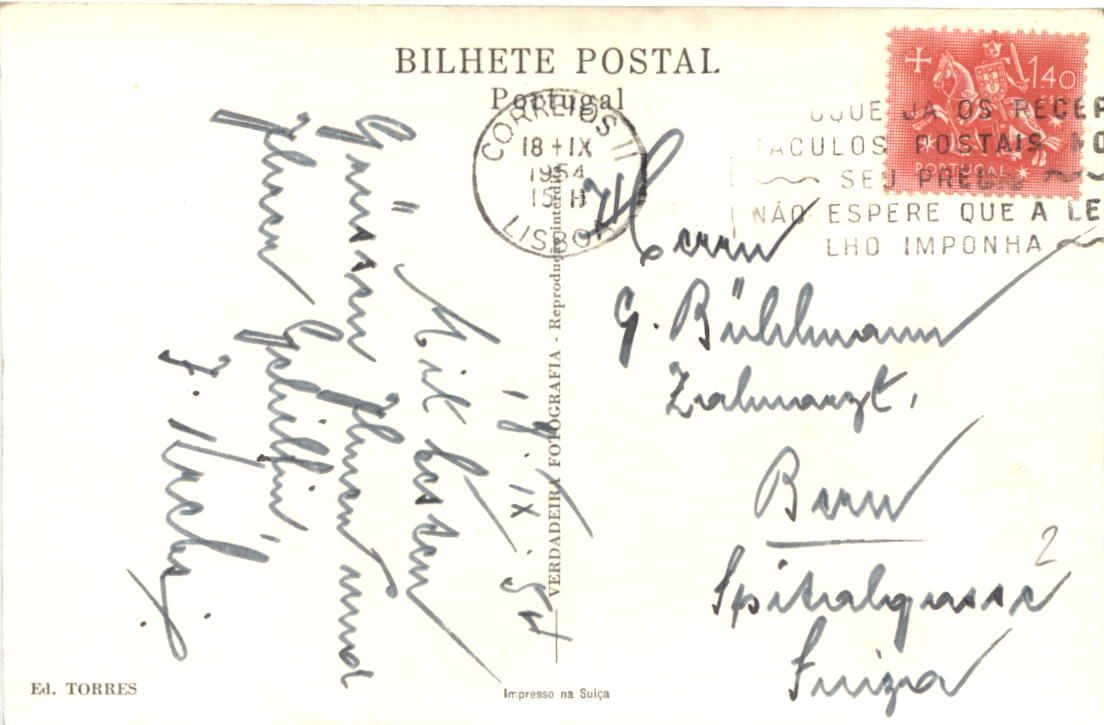 BILHETE POSTAL
Portugal
CORREIOS
18 + IX
1954
15 H
LISBOA
1$40
PORTUGAL
JÁ OS RECEP
TÁCULOS POSTAIS NO
SEU PREDIO
NÃO ESPERE QUE A LE
LHO IMPONHA
Herrn
G. Bühlmann
Zahnarzt,
Bern
Spitalgasse 2
Suiza
19. IX. 54
Mit besten
Grüssen Ihnen und
Ihrer Gehilfin
VERDADEIRA FOTOGRAFIA - Reprodução interdita
Ed. TORRES
Impresso na Suíça